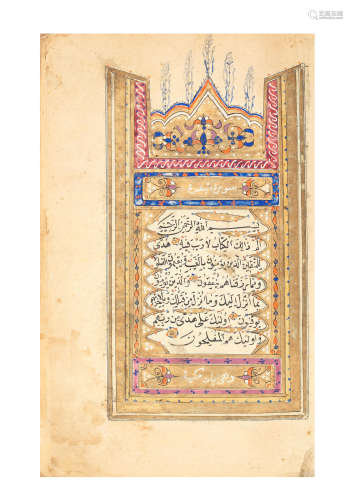 بسم الله الرحمن الرحيم
الم ذلك الكتاب لا ريب فيه هدى
للمتقين الذين يؤمنون بالغيب ويقيمون الصلوة
ومما رزقناهم ينفقون والذين يؤمنون
بما انزل اليك وما انزل من قبلك وبالاخرة هم
يوقنون اولئك على هدى من ربهم
واولئك هم المفلحون